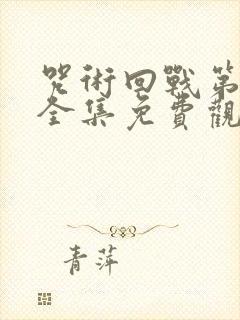 咒術回戰第
全集免費觀
青萍